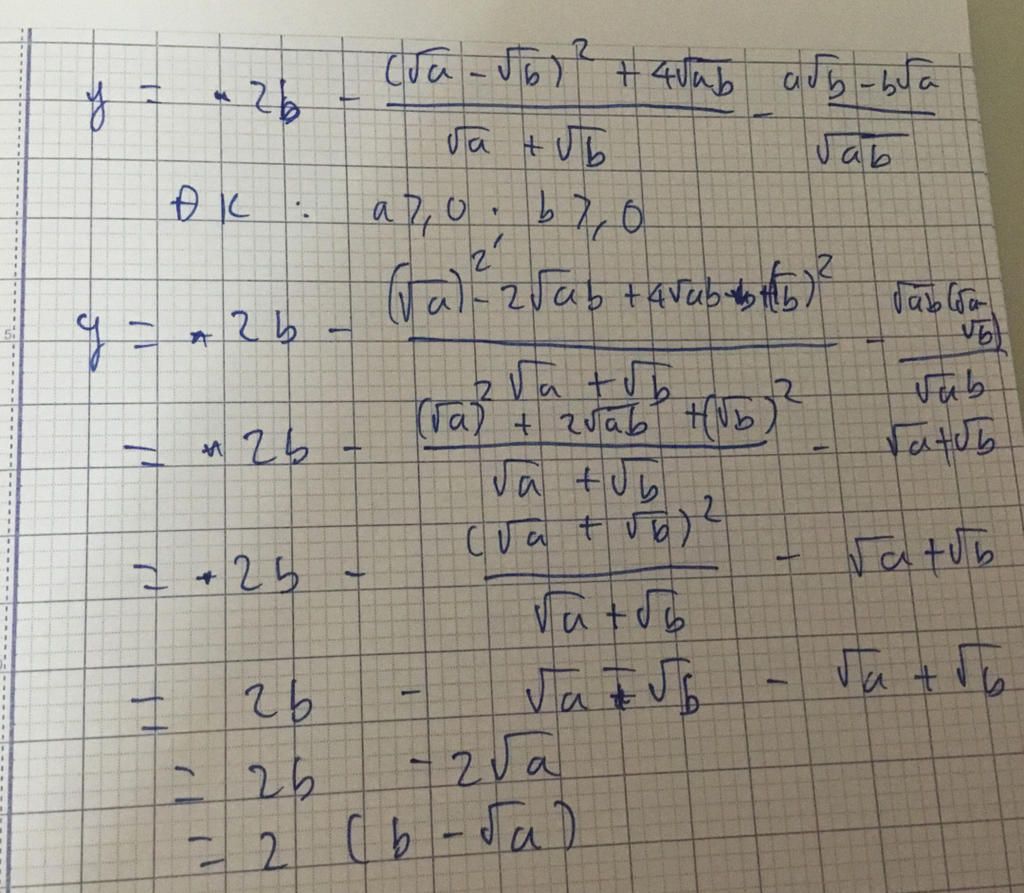 y = - 2b - \frac{(√a - √b)^2 + 4√ab}{√a + √b} - \frac{a√b - b√a}{√ab}
ĐK : a ≥ 0 ; b ≥ 0
y = - 2b - \frac{(√a)^2 - 2√ab + 4√ab + (√b)^2}{√a + √b} - \frac{√ab(√a - √b)}{√ab}
= - 2b - \frac{(√a)^2 + 2√ab + (√b)^2}{√a + √b} - √a + √b
= - 2b - \frac{(√a + √b)^2}{√a + √b} - √a + √b
= 2b - √a - √b - √a + √b
= 2b - 2√a
= 2 (b - √a)